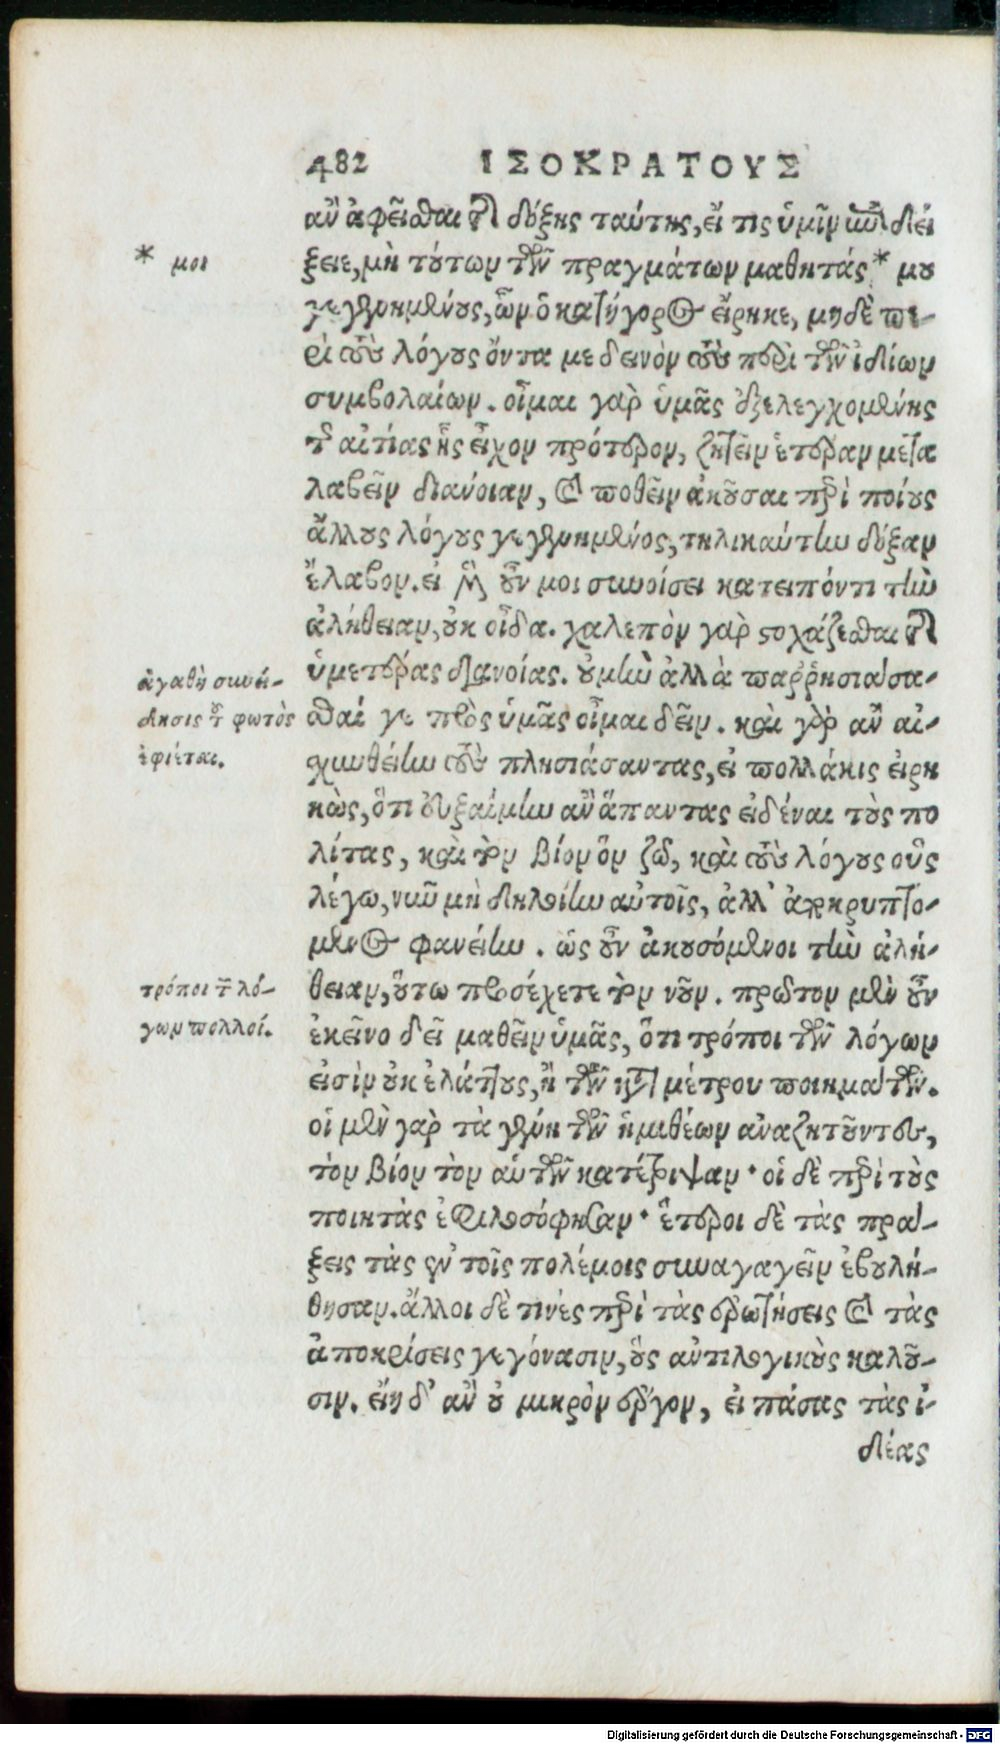 482 ΙΣΟΚΡΑΤΟΥΣ
ἂν ἀφεῖσθαι τῆς δόξης ταύτης, εἴ τις ὑμῖν ἐπιδεί
ξειε, μὴ τούτων τῶν πραγμάτων μαθητάς * μου
* μοι
γεγενημένους, ὧν ὁ κατήγορος εἴρηκε, μηδὲ πε-
ρὶ τοὺς λόγους ὄντα με δεινὸν τοὺς περὶ τῶν ἰδίων
συμβολαίων. οἶμαι γὰρ ὑμᾶς ἐξελεγχομένης
τῆς αἰτίας ἧς εἶχον πρότερον, ζητεῖν ἑτέραν μετα
λαβεῖν διάνοιαν, καὶ ποθεῖν ἀκοῦσαι περὶ ποίους
ἄλλους λόγους γεγενημένος, τηλικαύτην δόξαν
ἔλαβον. εἰ μὲν οὖν μοι συνοίσει κατειπόντι τὴν
ἀλήθειαν, οὐκ οἶδα. χαλεπὸν γὰρ στοχάζεσθαι τῆς
ὑμετέρας διανοίας. οὐ μὴν ἀλλὰ παῤῥησιάσα-
ἀγαθὴ συνεί-
δησις τοῦ φωτὸς
ἐφίεται.
σθαί γε πρὸς ὑμᾶς οἶμαι δεῖν. καὶ γὰρ ἂν αἰ-
σχυνθείην τοὺς πλησιάσαντας, εἰ πολλάκις εἰρη
κὼς, ὅτι δεξαίμην ἂν ἅπαντας εἰδέναι τοὺς πο
λίτας, καὶ τὸν βίον ὃν ζῶ, καὶ τοὺς λόγους οὓς
λέγω, νῦν μὴ δηλοίην αὐτοῖς, ἀλλ' ἀποκρυπτό-
μενος φανείην. ὡς οὖν ἀκουσόμενοι τὴν ἀλή-
θειαν, οὕτω προσέχετε τὸν νοῦν. πρῶτον μὲν οὖν
τρόποι τῶν λό-
γων πολλοί.
ἐκεῖνο δεῖ μαθεῖν ὑμᾶς, ὅτι τρόποι τῶν λόγων
εἰσὶν οὐκ ἐλάττους, ἢ τῶν κατὰ μέτρου ποιημάτων.
οἱ μὲν γὰρ τὰ γένη τῶν ἡμιθέων ἀναζητοῦντες,
τὸν βίον τὸν αὑτῶν κατέτριψαν· οἱ δὲ περὶ τοὺς
ποιητὰς ἐφιλοσόφησαν· ἕτεροι δὲ τὰς πρά-
ξεις τὰς ἐν τοῖς πολέμοις συναγαγεῖν ἐβουλή-
θησαν. ἄλλοι δὲ τινὲς περὶ τὰς ἐρωτήσεις καὶ τὰς
ἀποκρίσεις γεγόνασιν, οὓς ἀντιλογικοὺς καλοῦ-
σιν. εἴη δ' ἂν οὐ μικρὸν ἔργον, εἰ πάσας τὰς ἰ-
δέας
Digitalisierung gefördert durch die Deutsche Forschungsgemeinschaft - DFG